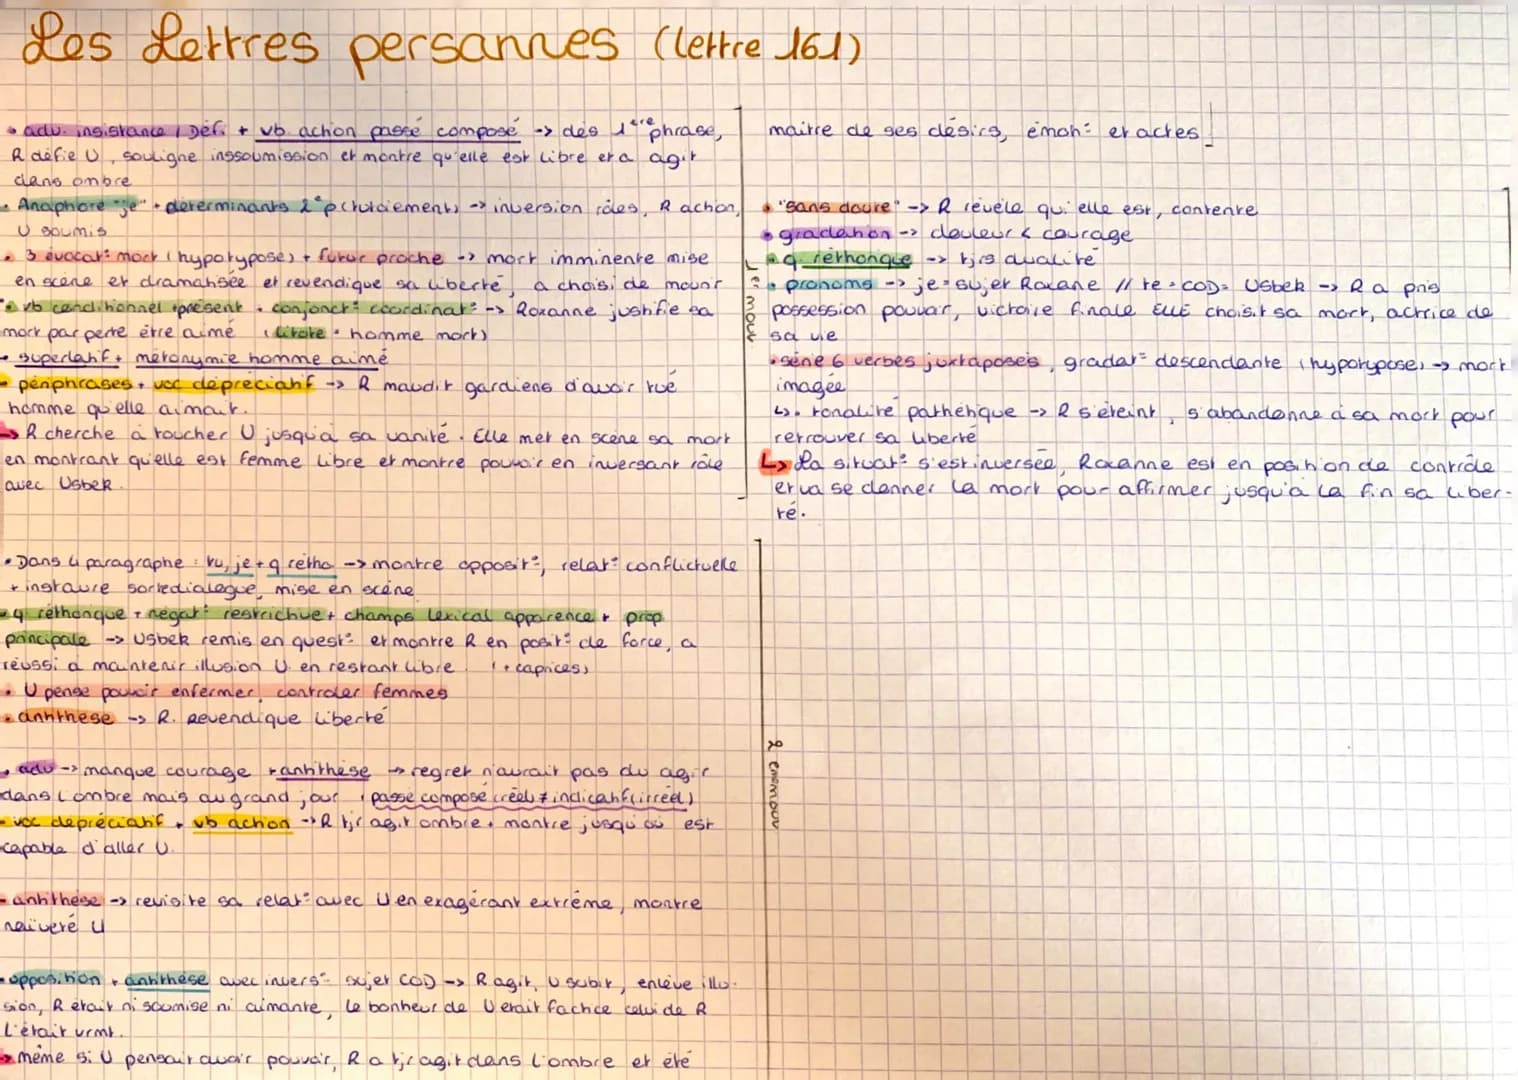 Les Lettres persannes (lettre 161)
• adv. insistance / Défi + vb action passé composé -> dès 1ère phrase,
R défie U, souligne inssoumission et montre qu'elle est libre et a agit
dans ombre
• Anaphore "je" + déterminants 2°p (tutoiement) -> inversion rôles, R action,
U soumis
• 3 évocat° mort (hypotypose) + futur proche -> mort imminente mise
en scène et dramatisée et revendique sa liberté, a choisi de mourir
• vb conditionnel présent + conjonct° coordinat° -> Roxanne justifie sa
mort par perte être aimé (litote = homme mort)
• superlatif + métonymie homme aimé
• périphrases + voc dépréciatif -> R maudit gardiens d'avoir tué
homme qu'elle aimait.
-> R cherche à toucher U jusqu'à sa vanité. Elle met en scène sa mort
en montrant qu'elle est femme libre et montre pouvoir en inversant rôle
avec Usbek.
1 emouv
• Dans 4 paragraphe : tu, je + q rétho -> montre opposit°, relat° conflictuelle
+ instaure sorte dialogue, mise en scène
• q réthorique + négat° restrictive + champs lexical apparence + prop
principale -> Usbek remis en quest° et montre R en posit° de force, a
réussi à maintenir illusion U en restant libre (+ caprices)
• U pense pouvoir enfermer, controler femmes
• antithèse -> R. Revendique liberté
• adv -> manque courage + antithèse -> regret n'aurait pas du agir
dans l'ombre mais au grand jour (passé composé (réel) ≠ indicatif (irréel)
• voc dépréciatif + vb action -> R tjr agit ombre + montre jusqu'où est
capable d'aller U.
• antithèse -> revisite sa relat° avec U en exagérant extrême, montre
naïveté U
• opposition + antithèse avec invers° sujet COD -> R agit, U subit, enlève illu-
sion, R était ni soumise ni aimante, le bonheur de U était factice celui de R
l'était vrmt.
-> même si U pensait avoir pouvoir, R a tjr agit dans l'ombre et été
2 emouv
maitre de ses désirs, émot° et actes
• "sans doute" -> R révèle qu'elle est, contente
• gradation -> douleur < courage
• q. réthorique -> tjrs dualité
• pronoms -> je = sujet Roxane // te = COD = Usbek -> R a pris
possession pouvoir, victoire finale ELLE choisit sa mort, actrice de
sa vie
• série 6 verbes juxtaposés, gradat° descendante (hypotypose) -> mort
imagée
↳ + tonalité pathétique -> R s'éteint, s'abandonne à sa mort pour
retrouver sa liberté
↳ La situat° s'est inversée, Roxanne est en position de contrôle
et va se donner la mort pour affirmer jusqu'à la fin sa liber-
té.